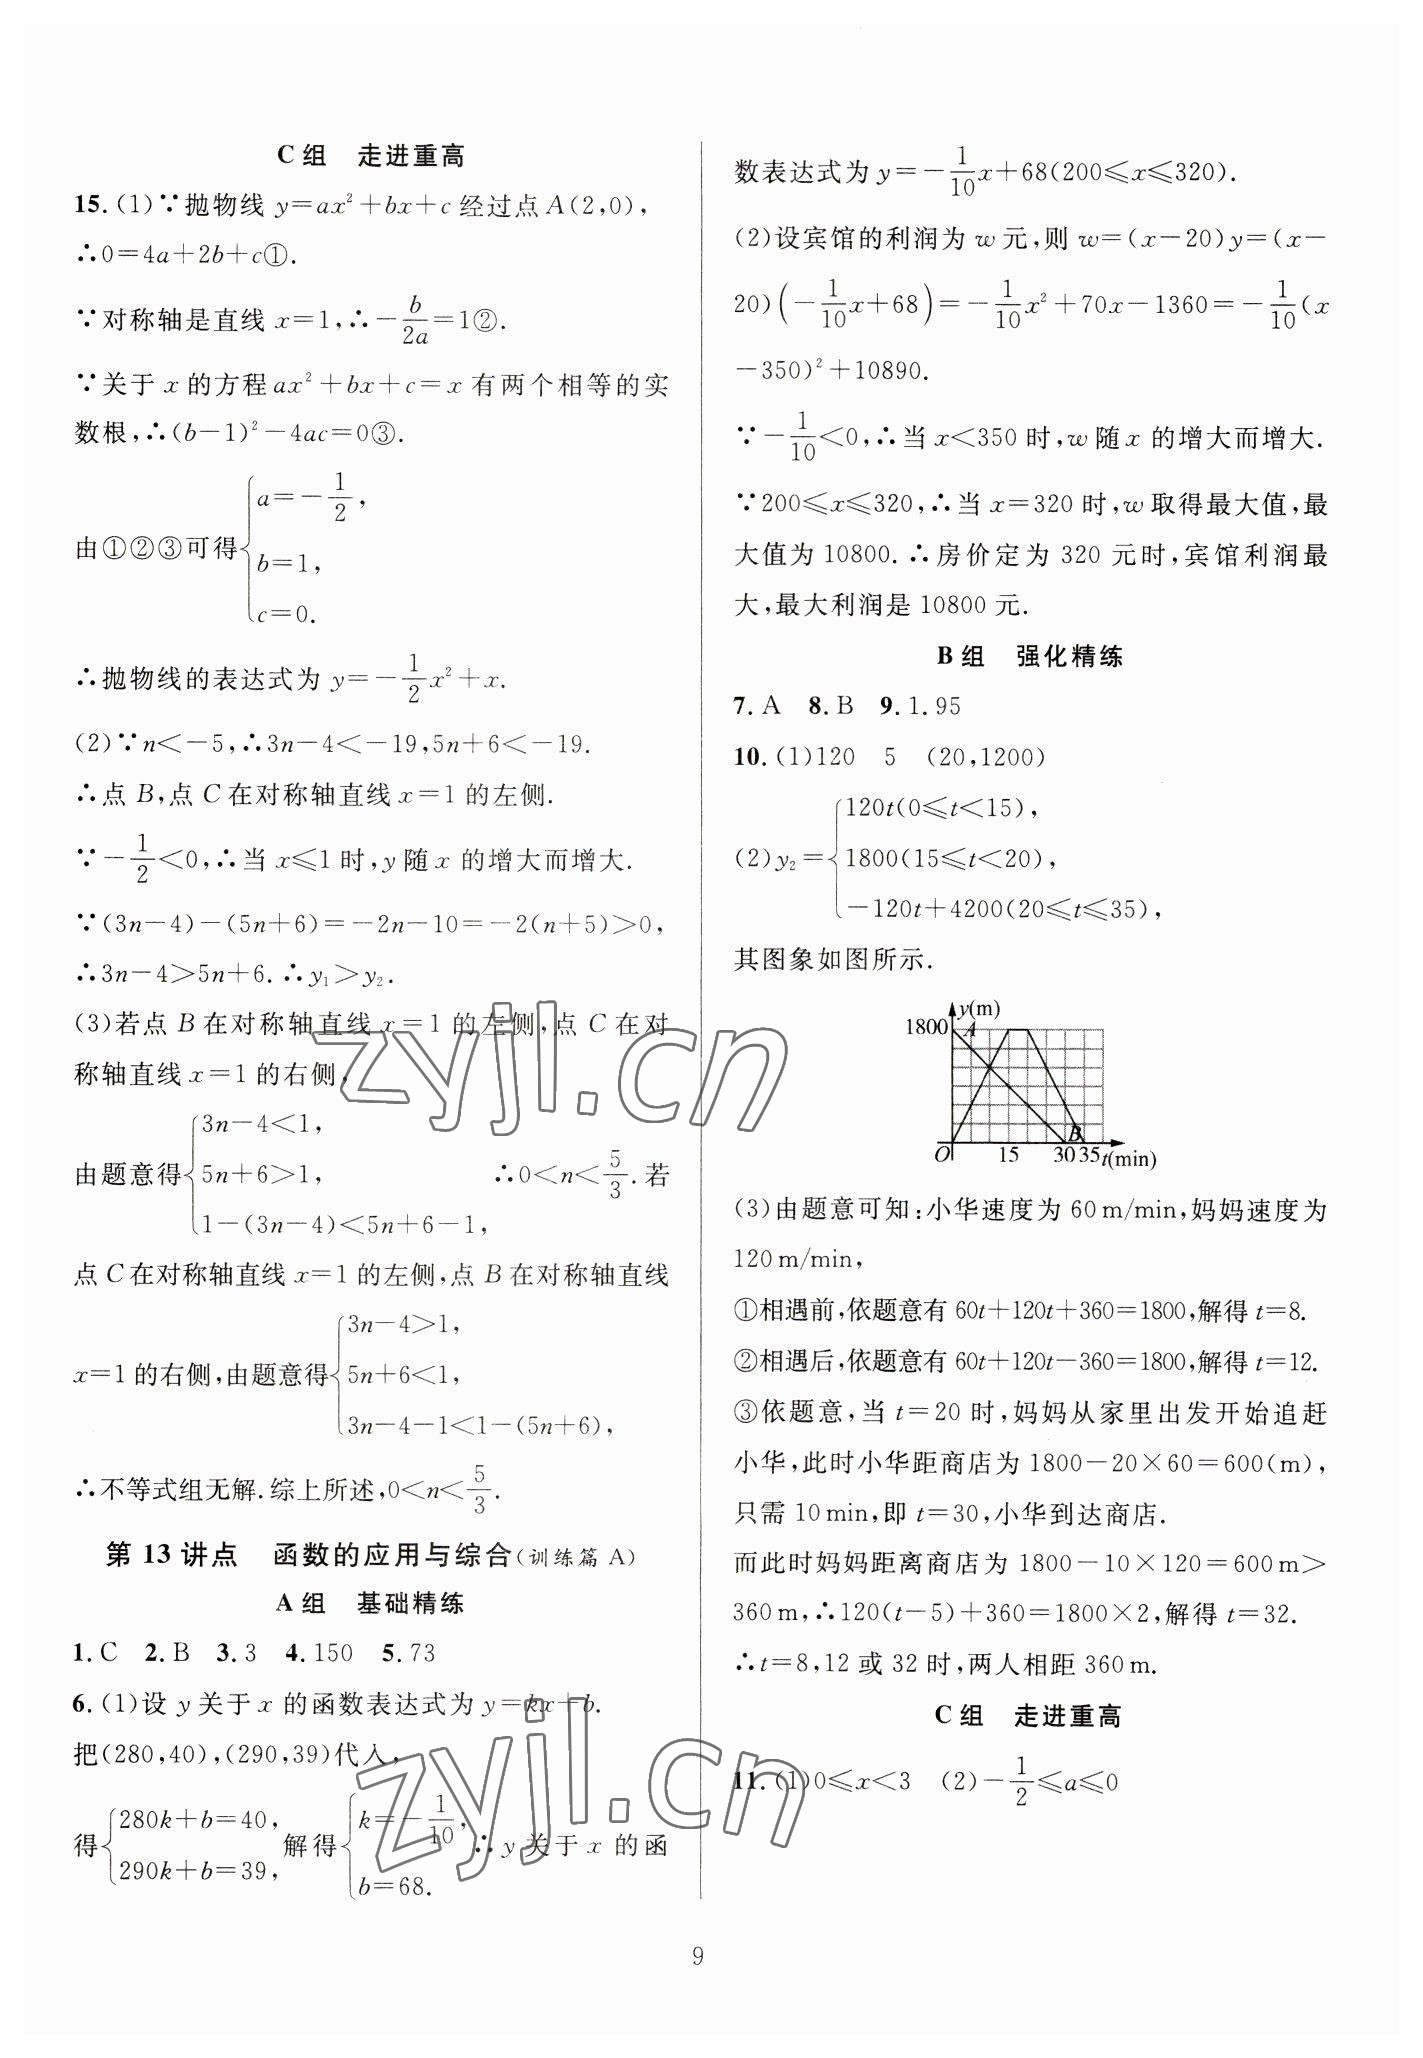 C组 走进重高
15.(1)∵抛物线 y=ax²+bx+c 经过点 A(2,0),
∴0=4a+2b+c①.
∵对称轴是直线 x=1,∴-b/2a=1②.
∵关于 x 的方程 ax²+bx+c=x 有两个相等的实
数根,∴(b-1)²-4ac=0③.
由①②③可得{a=-1/2,
b=1,
c=0.
∴抛物线的表达式为 y=-1/2x²+x.
(2)∵n<-5,∴3n-4<-19,5n+6<-19.
∴点 B,点 C 在对称轴直线 x=1 的左侧.
∵-1/2<0,∴当 x≤1 时,y 随 x 的增大而增大.
∵(3n-4)-(5n+6)=-2n-10=-2(n+5)>0,
∴3n-4>5n+6.∴y₁>y₂.
(3)若点 B 在对称轴直线 x=1 的左侧,点 C 在对
称轴直线 x=1 的右侧,
由题意得{3n-4<1,
5n+6>1,
1-(3n-4)<5n+6-1,
∴0<n<5/3.若
点 C 在对称轴直线 x=1 的左侧,点 B 在对称轴直线
x=1 的右侧,由题意得{3n-4>1,
5n+6<1,
3n-4-1<1-(5n+6),
∴不等式组无解.综上所述,0<n<5/3.
第 13 讲点 函数的应用与综合(训练篇 A)
A组 基础精练
1.C 2.B 3.3 4.150 5.73
6.(1)设 y 关于 x 的函数表达式为 y=kx+b.
把(280,40),(290,39)代入,
得{280k+b=40,
290k+b=39,
解得{k=-1/10,
b=68.
∴y 关于 x 的函
数表达式为 y=-1/10x+68(200≤x≤320).
(2)设宾馆的利润为 w 元,则 w=(x-20)y=(x-
20)(-1/10x+68)=-1/10x²+70x-1360=-1/10(x
-350)²+10890.
∵-1/10<0,∴当 x<350 时,w 随 x 的增大而增大.
∵200≤x≤320,∴当 x=320 时,w 取得最大值,最
大值为 10800.∴房价定为 320 元时,宾馆利润最
大,最大利润是 10800 元.
B组 强化精练
7.A 8.B 9.1.95
10.(1)120 5 (20,1200)
(2)y₂={120t(0≤t<15),
1800(15≤t<20),
-120t+4200(20≤t≤35),
其图象如图所示.
y(m)
1800 A
B
O 15 30 35 t(min)
(3)由题意可知:小华速度为 60 m/min,妈妈速度为
120 m/min,
①相遇前,依题意有 60t+120t+360=1800,解得 t=8.
②相遇后,依题意有 60t+120t-360=1800,解得 t=12.
③依题意,当 t=20 时,妈妈从家里出发开始追赶
小华,此时小华距商店为 1800-20×60=600(m),
只需 10 min,即 t=30,小华到达商店.
而此时妈妈距离商店为 1800-10×120=600 m>
360 m,∴120(t-5)+360=1800×2,解得 t=32.
∴t=8,12 或 32 时,两人相距 360 m.
C组 走进重高
11.(1)0≤x<3 (2)-1/2≤a≤0
9
zyjl.cn
zyjl.cn